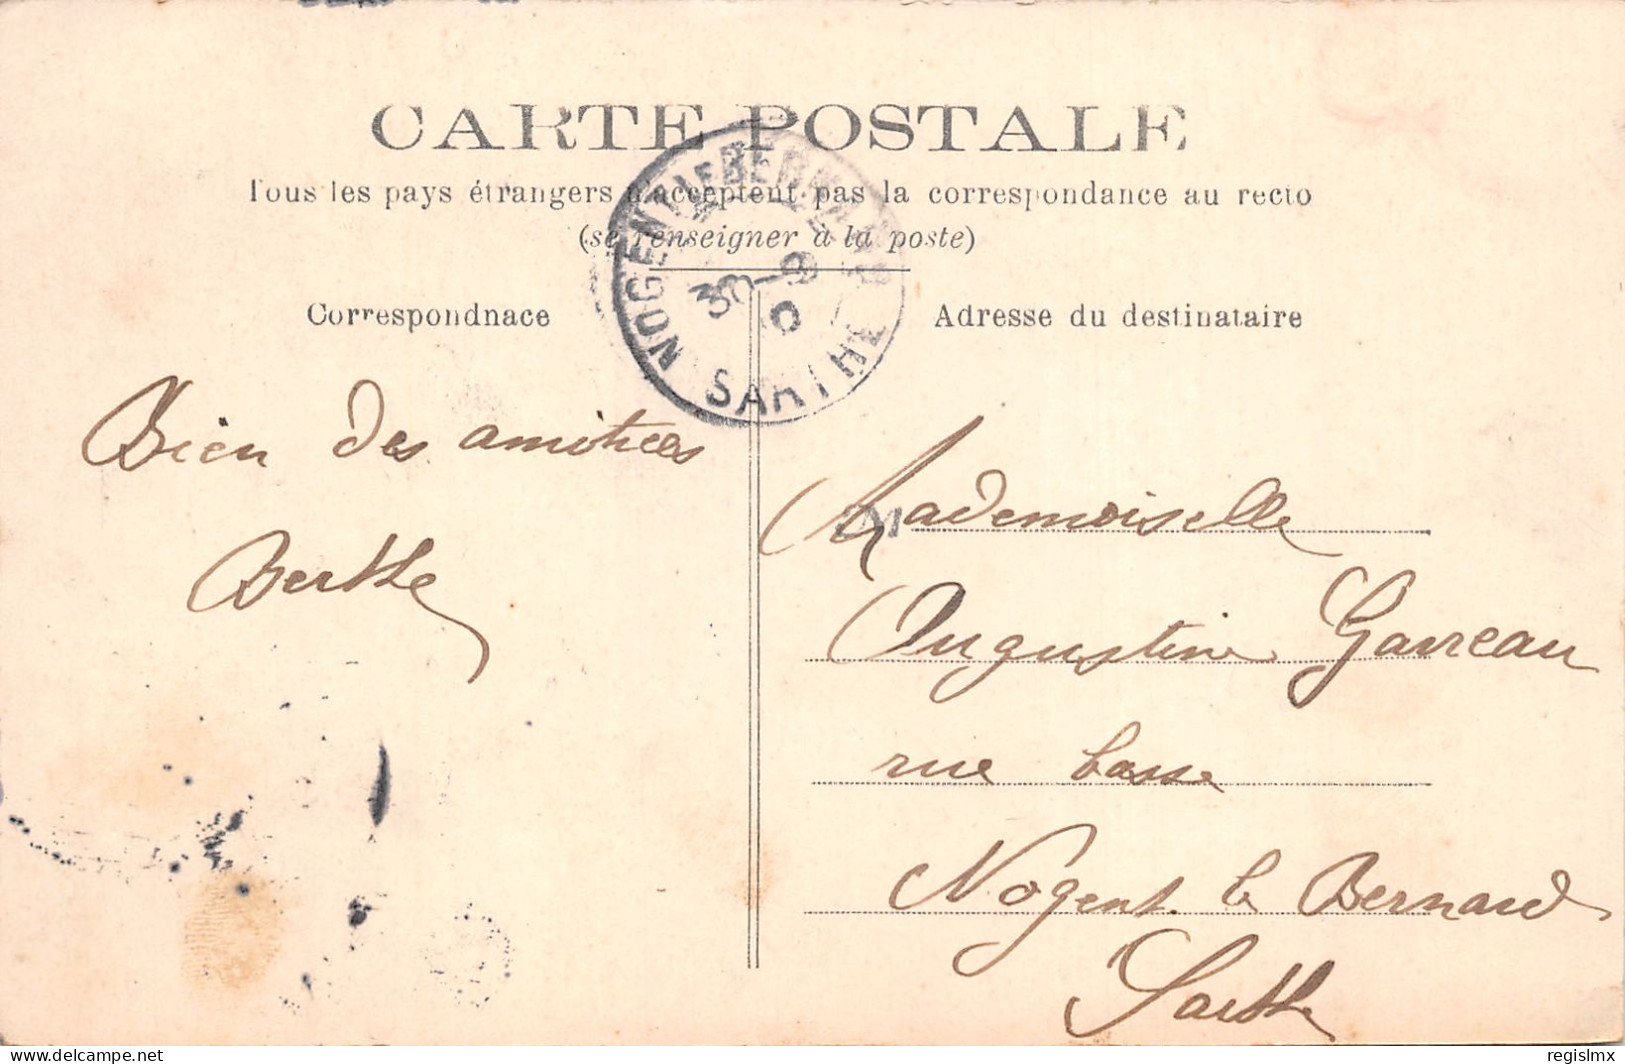 CARTE POSTALE
Tous les pays étrangers n'acceptent pas la correspondance au recto
(se renseigner à la poste)
Correspondnace
Adresse du destinataire
NOGENT-LE-BERNARD
3-9
SARTHE
Bien des amitiées
Berthe
Mademoiselle
Augustine Garreau
rue basse
Nogent le Bernard
Sarthe
delcampe.net
regislmx